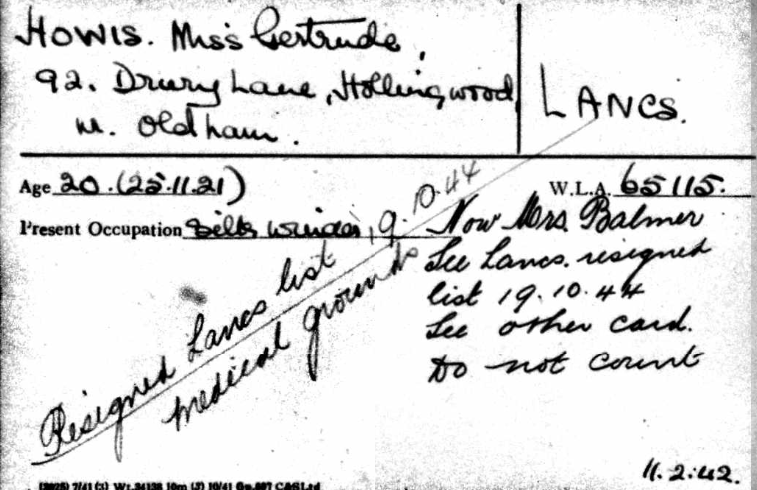 HOWIS. Miss Gertrude,
92. Drury Lane, Hollingwood,
nr. Oldham.
LANCS.
Age 20. (25.11.21)
W.L.A. 65115.
Present Occupation Silk winder
Resigned Lancs list 19.10.44
medical grounds
Now Mrs. Balmer
See Lancs. resigned
list 19.10.44
See other card.
Do not count
11.2.42.
(3975) 7/41 (3) Wt. 34138 10m (3) 10/41 Gp.697 C&SLtd